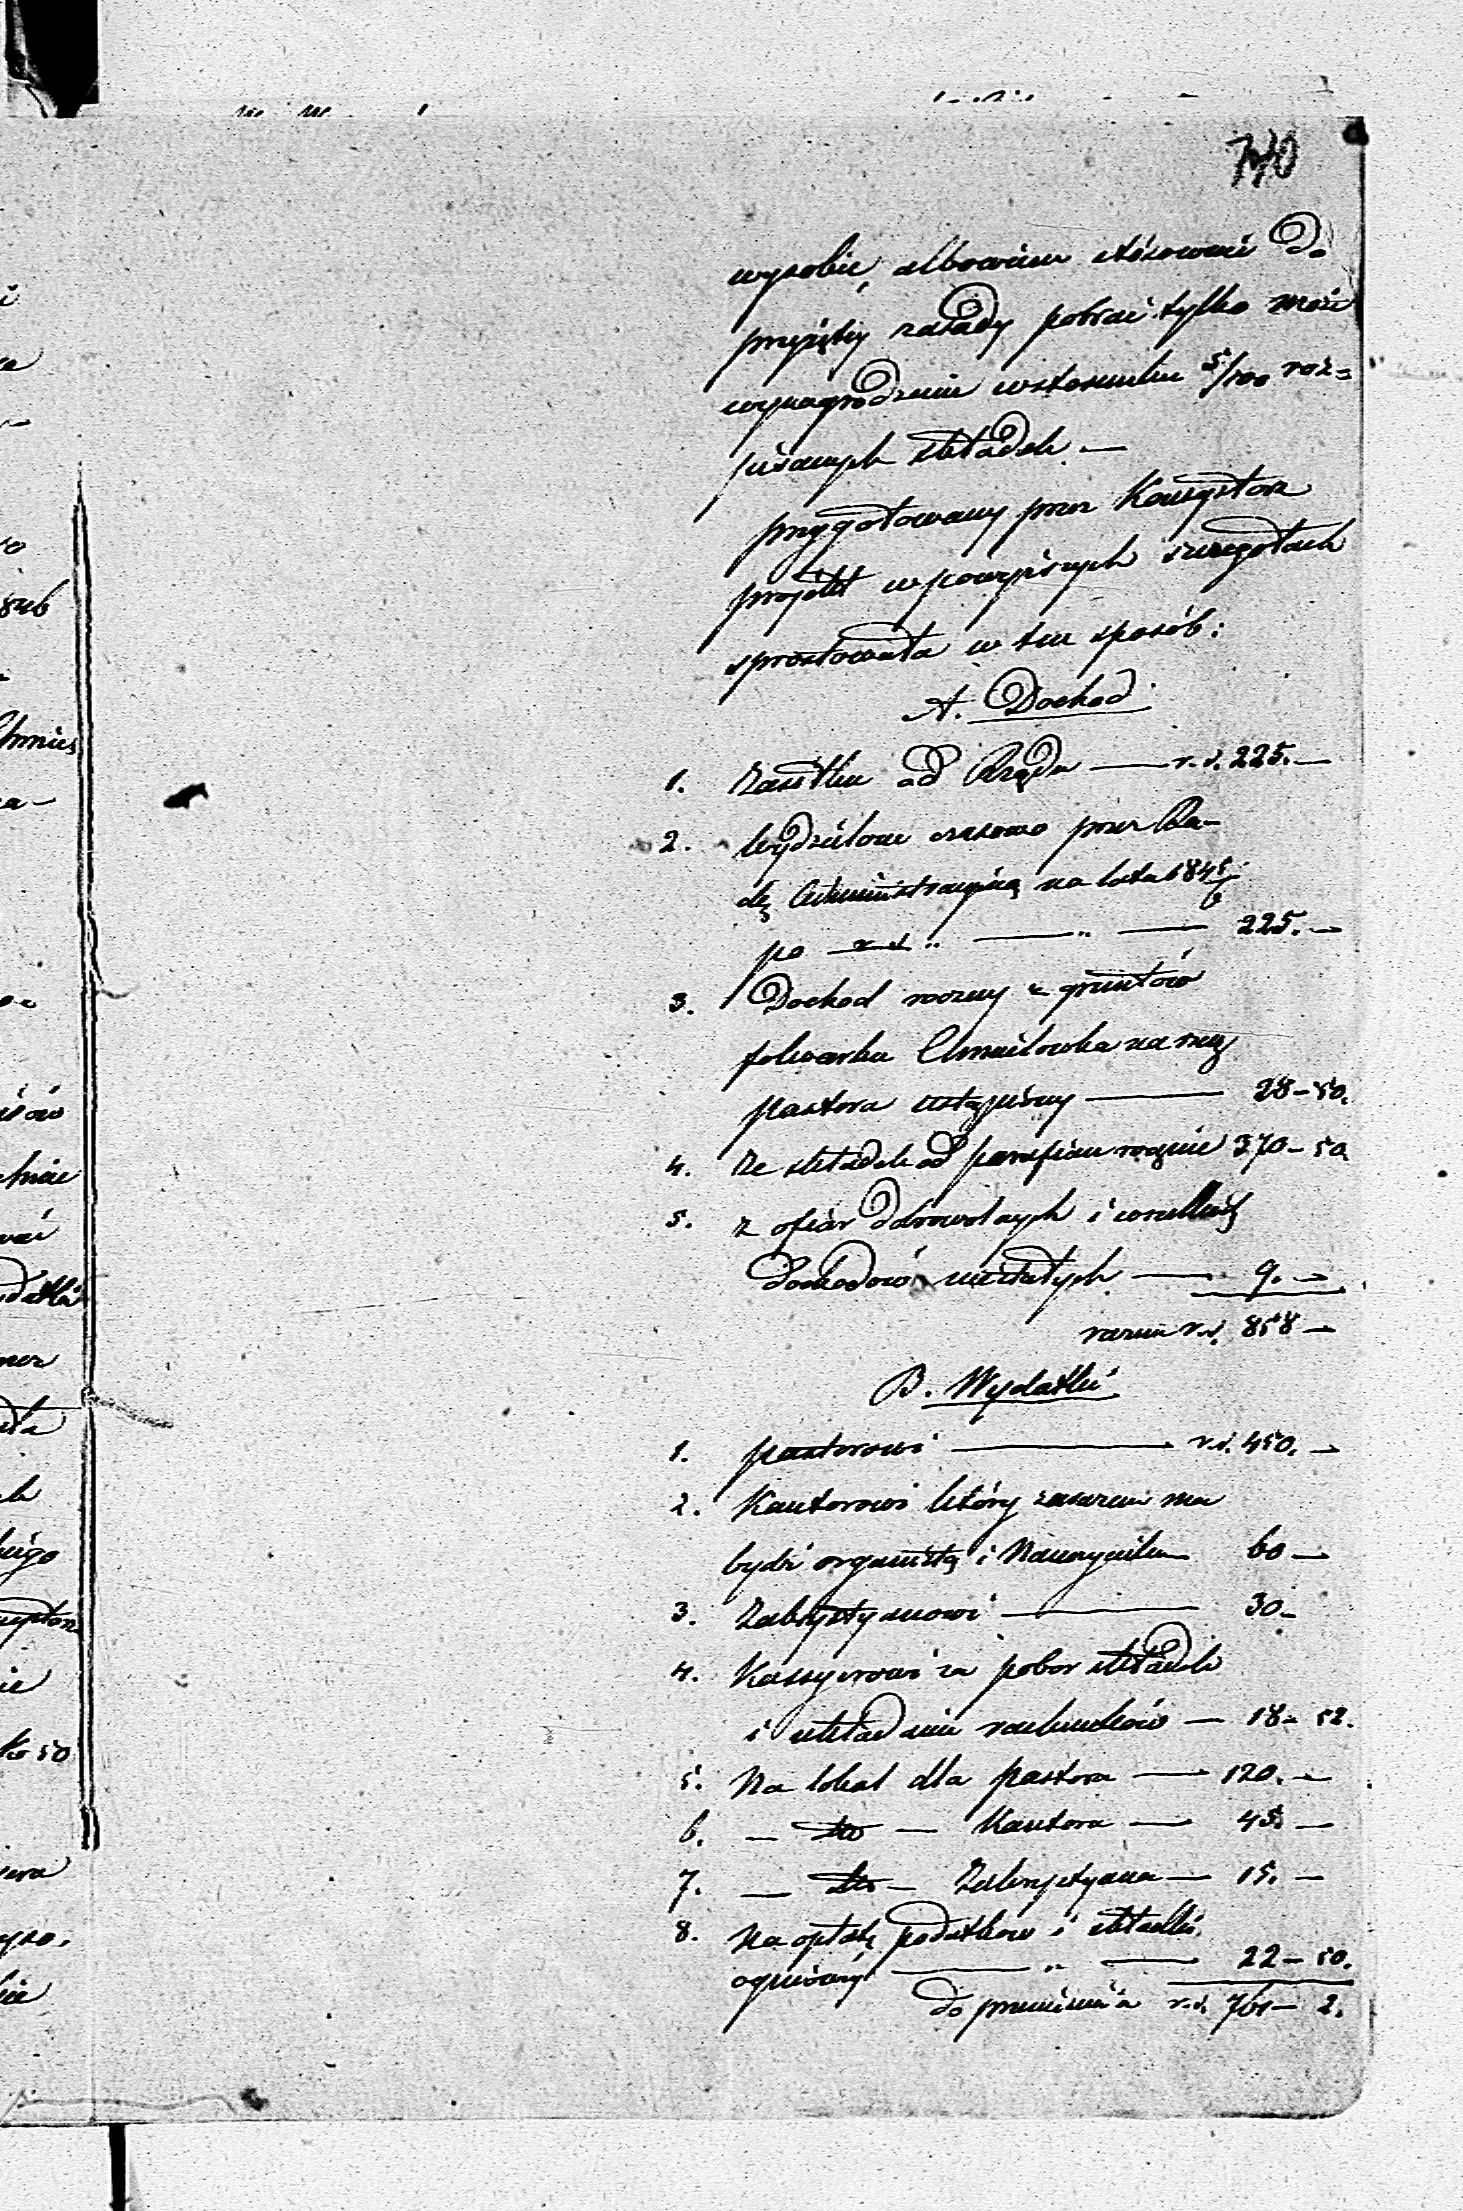 740
wyrobić, albowiem stósownie do
przyjętej zasady pobrać tylko może
wynagrodzenie w stosunku 5/100 roz=
pisanych składek —
przygotowany przez Konsystorz
projekt w powyższych szczegółach
sprostowała w ten sposób:
A. Dochod
1. Zasiłku od Rządu — r.s. 225. —
2. Wydzielone czasowo przez Ra-
dę Administracyjną na lata 1845/6
po r.s. „ — „ — 225. —
3. Dochod roczny z gruntów
folwarku Chmielowka na rzecz
pastora ustąpiony — 28 — 50.
4. Ze składek od parafian rocznie 370 — 50
5. z ofiar dobrowolnych i wszelkich
dochodów niestałych — 9. —
razem r.s. 858 —
B. Wydatki
1. pastorowi — r.s. 450. —
2. Kantorowi który zarazem ma
bydź organistą i Nauczycielem 60 —
3. Zakrystyanowi — 30 —
4. Kassyerowi za pobor składek
i układanie rachunków — 18 — 52.
5. Na lokal dla pastora — 120. —
6. — dto — Kantora — 45. —
7. — dto — Zakrystyana — 15. —
8. Na opłatę podatków i składki
ogniowej — „ — 22 — 50.
do przeniesienia r.s. 761 — 2.